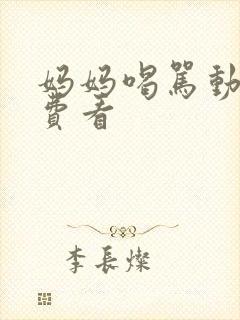 妈妈喝骂動
費看
李長燦